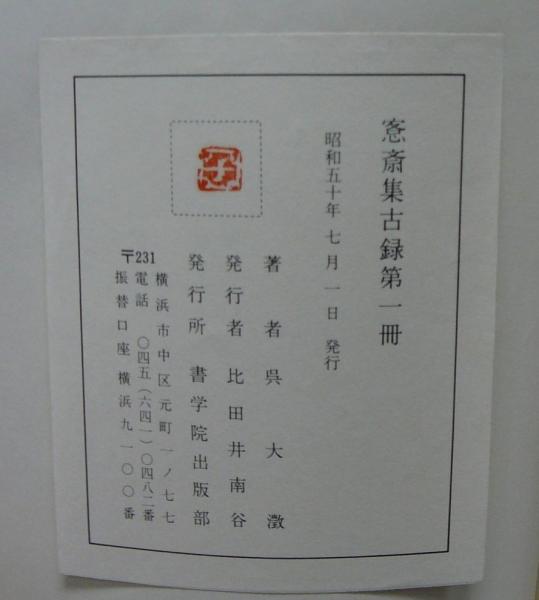 愙斎集古録第一冊
昭和五十年七月一日 発行
著者 呉大澂
発行者 比田井南谷
発行所 書学院出版部
〒231 横浜市中区元町一ノ七七
電話 〇四五(六四一)〇四八二番
振替口座 横浜九一〇〇番